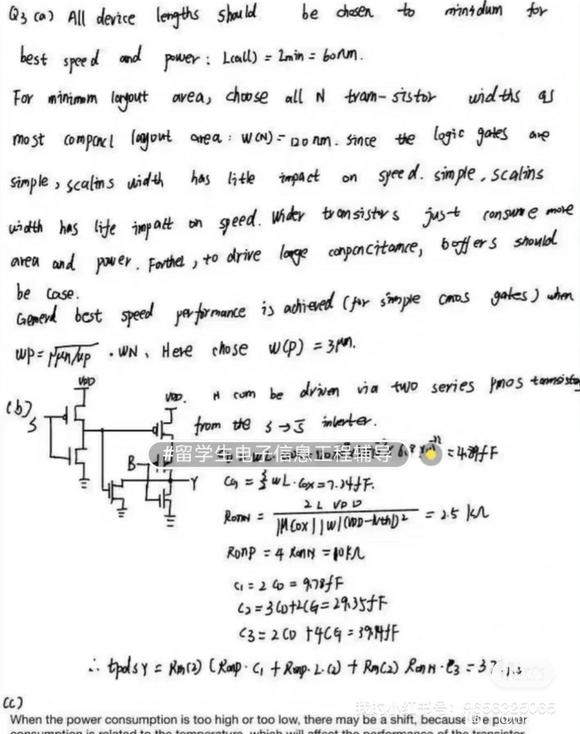 Q3 (a) All device lengths should be chosen to minsdum for
best speed and power: L(all) = Lmin = 60nm.
For minimum layout area, choose all N tram-sistor widths as
most compact layout area: W(N)=120nm. since the logic gates are
simple, scalins width has litle impact on speed. simple, scalins
width has life impact on speed. Wider transistors just consume more
area and power. Forthet, to drive large conpencitance, boffers should
be case.
General best speed performance is achieved (for simple cmos gates) when
WP=√μn/μp · WN. Here chose W(P) = 3μm.
(b) VDD VDD. can be driven via two series pmos
S from the S→S̅ inverter.
#留学生电子信息工程辅导 = 4.89fF
B Y CG = WL·Cox=7.24fF.
RonN = 2L VDD / = 2.5 kΩ
RonP = 4 RonN = 10kΩ
C1 = 2CD = 9.78fF
C2 = 3CD+2CG = 29.35fF
C3 = 2CD +4CG =
(c)
When the power consumption is too high or too low, there may be a shift, because the power
consumption is related to the temperature, which will affect the performance of the transistor